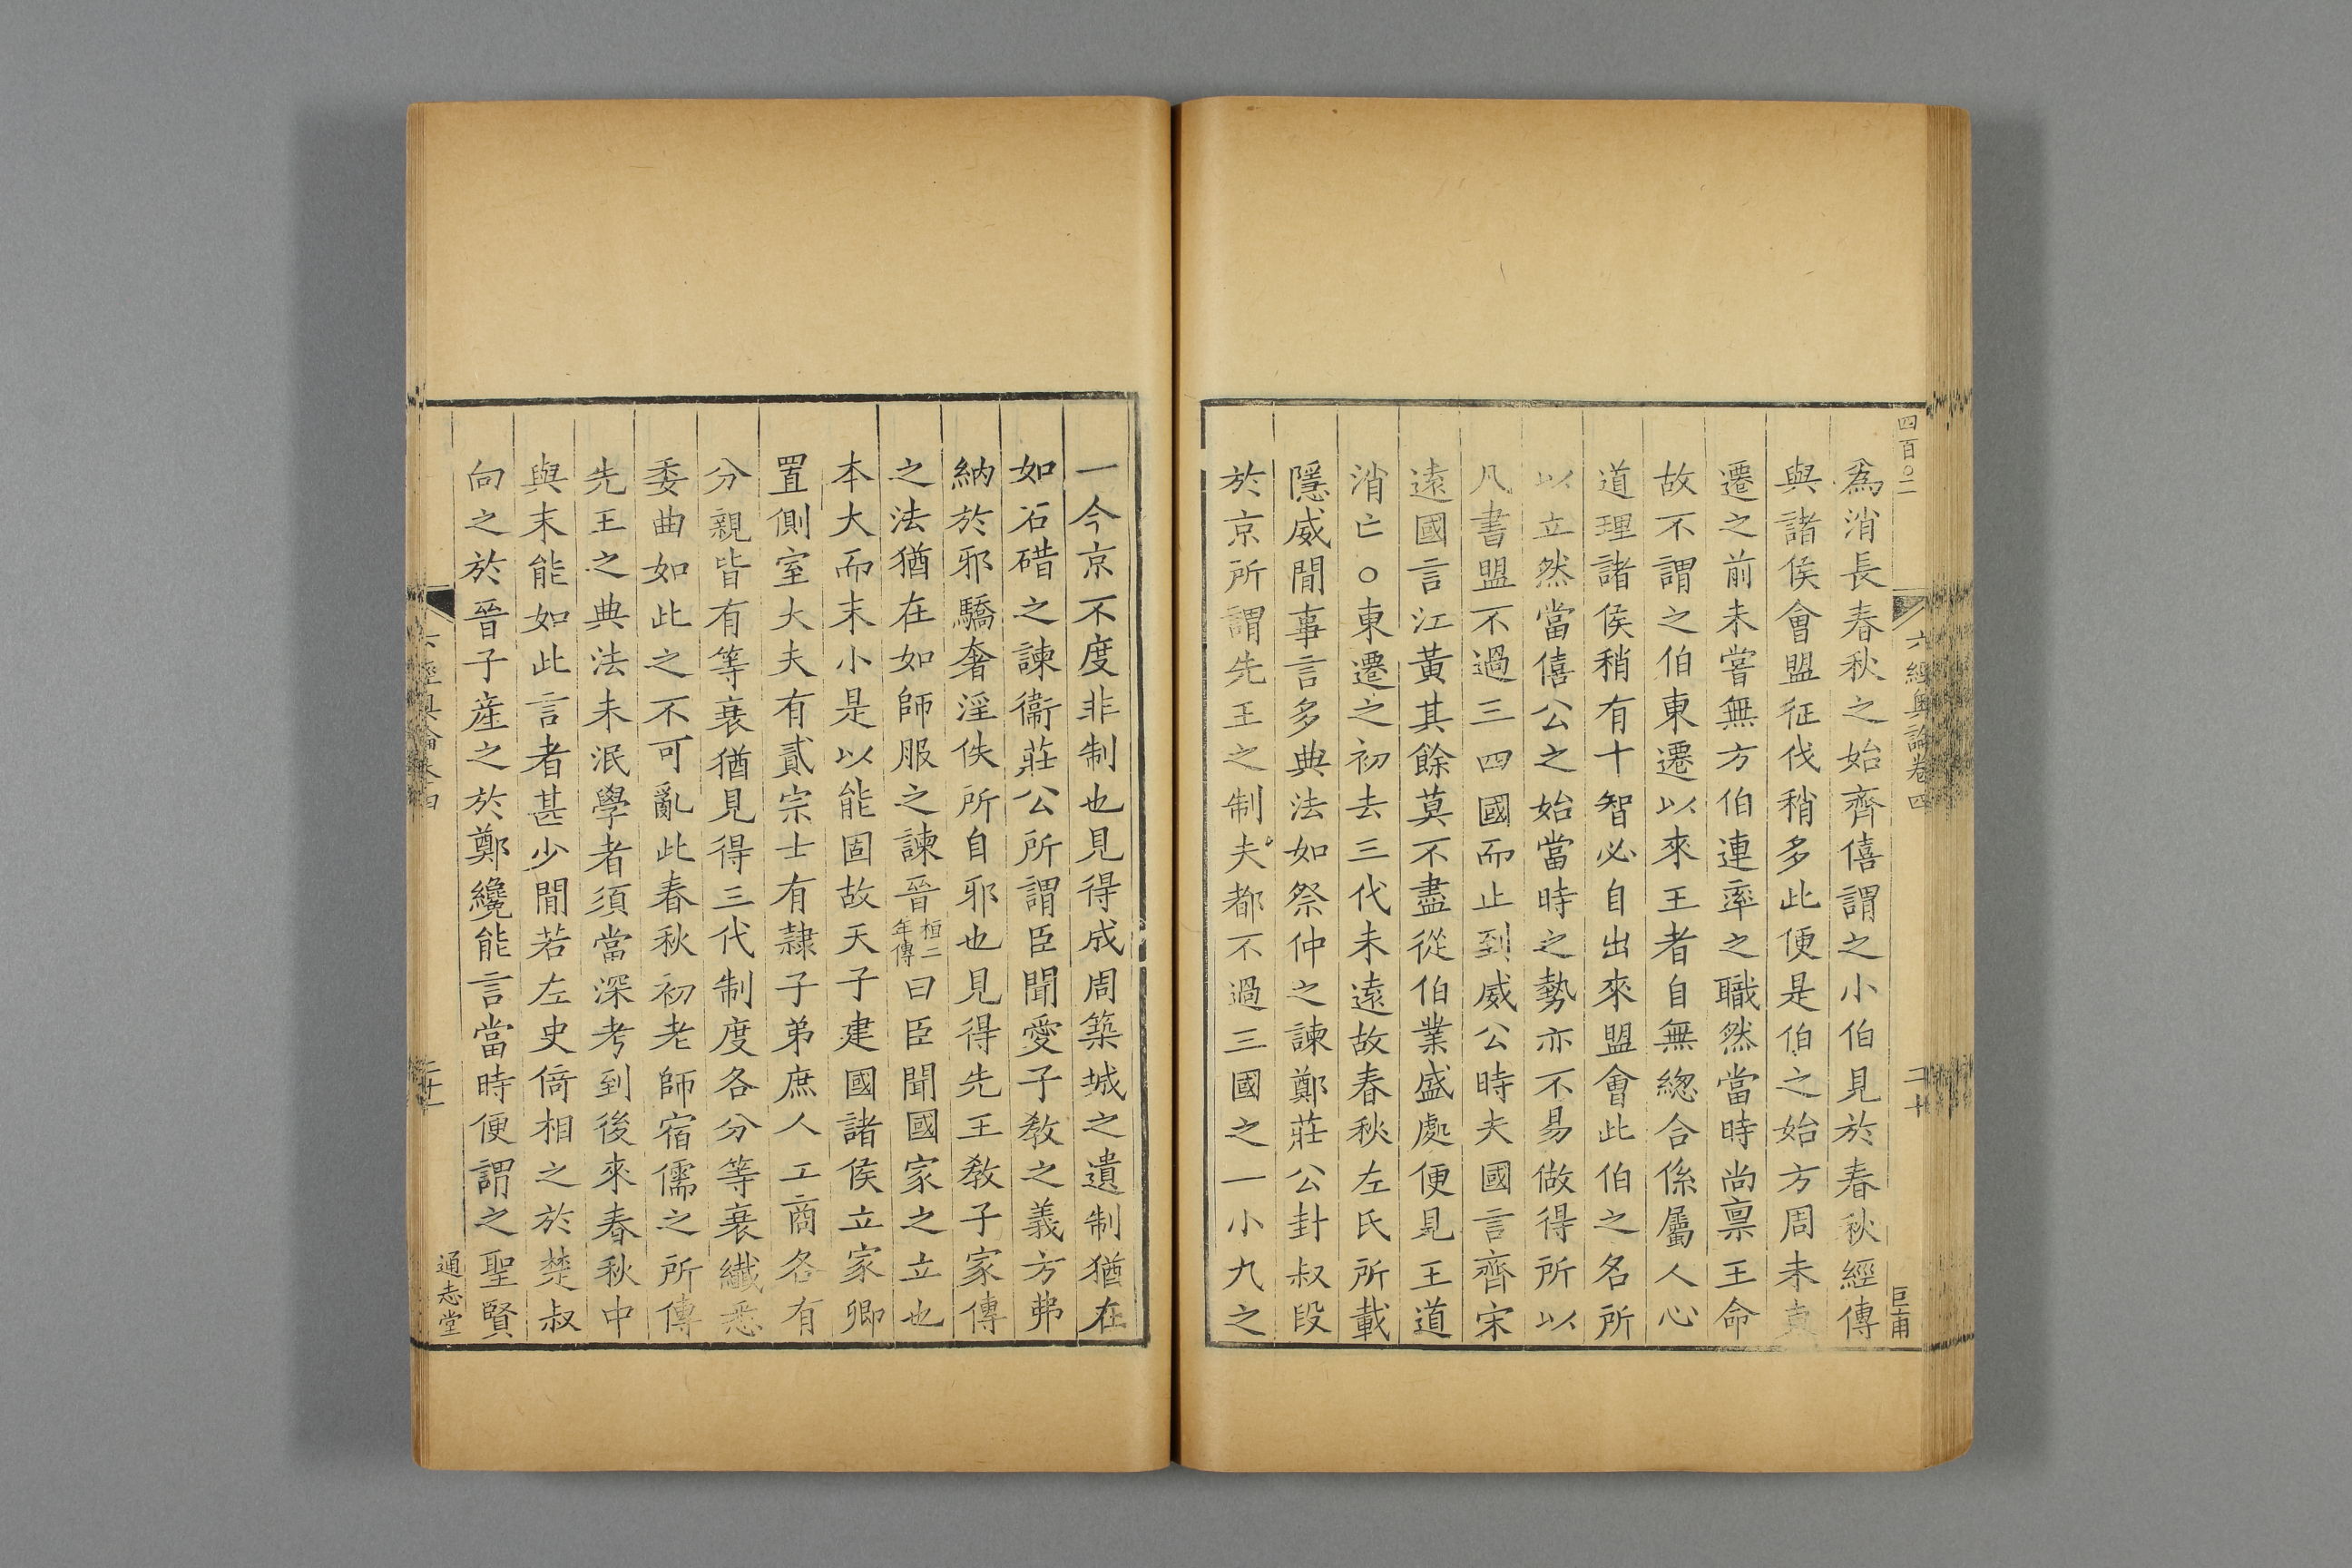 四百〇二
六經奧論卷四
二十
巨甫
為消長春秋之始齊僖謂之小伯見於春秋經傳
與諸侯會盟征伐稍多此便是伯之始方周未東
遷之前未嘗無方伯連率之職然當時尚禀王命
故不謂之伯東遷以來王者自無緫合係屬人心
道理諸侯稍有十智必自出來盟會此伯之名所
以立然當僖公之始當時之勢亦不易做得所以
凡書盟不過三四國而止到威公時夫國言齊宋
遠國言江黃其餘莫不盡從伯業盛處便見王道
消亡○東遷之初去三代未遠故春秋左氏所載
隱威間事言多典法如祭仲之諫鄭莊公封叔段
於京所謂先王之制夫都不過三國之一小九之
一今京不度非制也見得成周築城之遺制猶在
如石碏之諫衞莊公所謂臣聞愛子教之義方弗
納於邪驕奢淫佚所自邪也見得先王教子家傳
之法猶在如師服之諫晉桓二年傳曰臣聞國家之立也
本大而末小是以能固故天子建國諸侯立家卿
置側室大夫有貳宗士有隷子弟庶人工商各有
分親皆有等衰猶見得三代制度各分等衰纎悉
委曲如此之不可亂此春秋初老師宿儒之所傳
先王之典法未泯學者須當深考到後來春秋中
與末能如此言者甚少間若左史倚相之於楚叔
向之於晉子産之於鄭纔能言當時便謂之聖賢
六經奧論卷四
二十一
通志堂